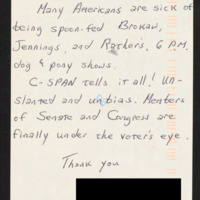 Many Americans are sick of
being spoon-fed Brokaw,
Jennings, and Rather's, 6 P.M.
dog & pony shows.
C-SPAN tells it all! Un-
slanted and unbias. Members
of Senate and Congress are
finally under the voter's eye.
Thank you